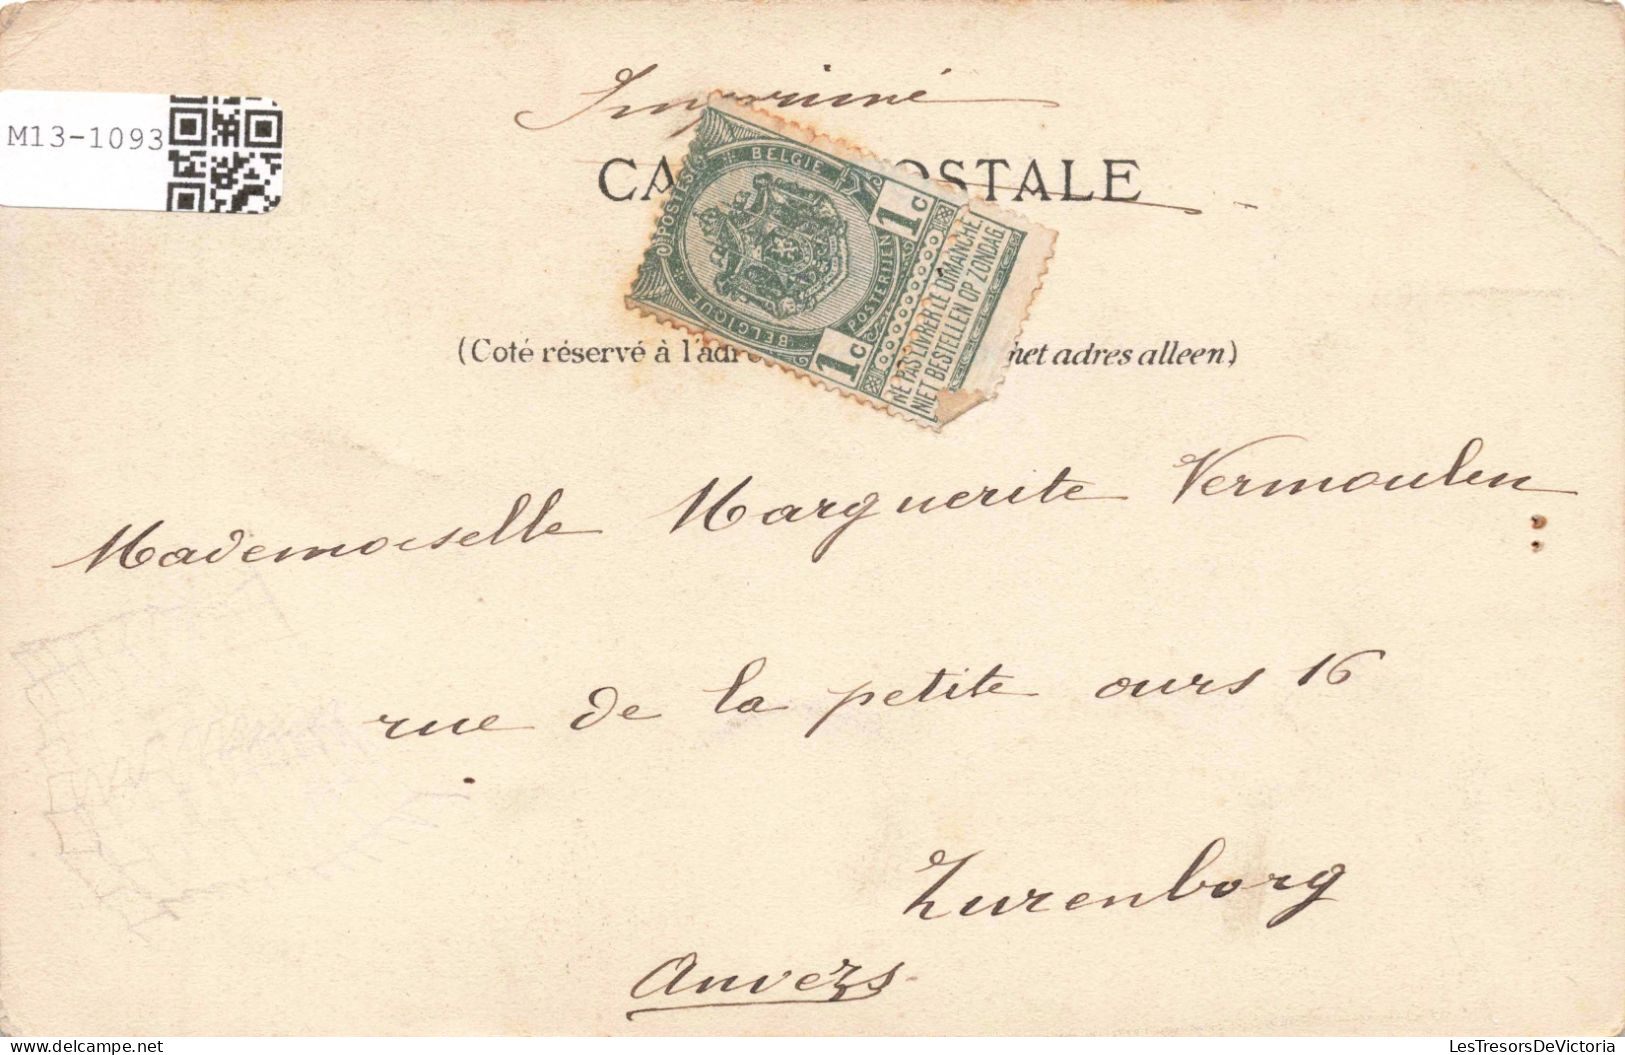 Imprimé
M13-1093
CA OSTALE
POSTES BELGIE
BELGIQUE POSTERIJEN
1c 1c
NE PAS LIVRER LE DIMANCHE
NIET BESTELLEN OP ZONDAG
(Coté réservé à l'adre het adres alleen)
Mademoiselle Marguerite Vermoulen
rue de la petite ours 16
Zurenborg
Anvers
LesTresorsDeVictoria.com